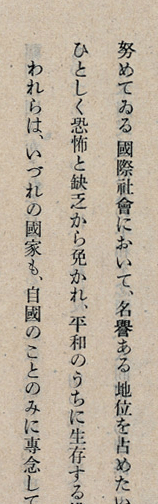 努めてゐる國際社會において、名譽ある地位を占めたい
ひとしく恐怖と缺乏から免かれ、平和のうちに生存する
われらは、いづれの國家も、自國のことのみに專念して